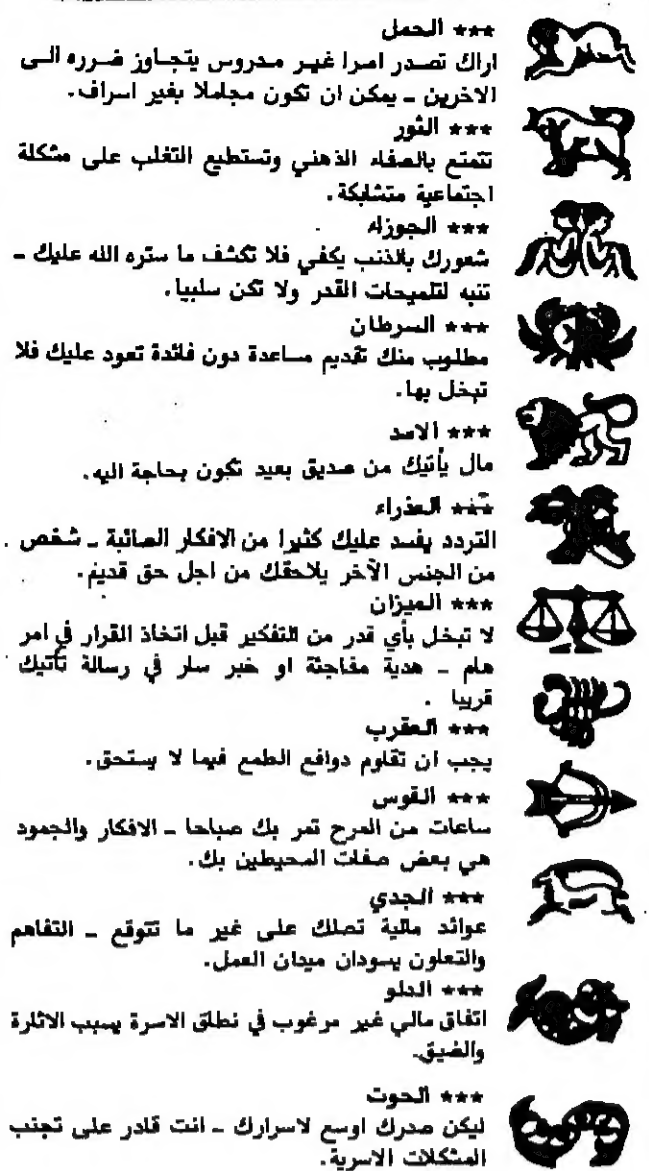 *** الحمل
اراك تصدر امرا غير مدروس يتجاوز ضرره الى
الاخرين ـ يمكن ان تكون مجاملا بغير اسراف.
*** الثور
تتمتع بالصفاء الذهني وتستطيع التغلب على مشكلة
اجتماعية متشابكة.
*** الجوزاء
شعورك بالذنب يكفي فلا تكشف ما ستره الله عليك ـ
تنبه لتلميحات القدر ولا تكن سلبيا.
*** السرطان
مطلوب منك تقديم مساعدة دون فائدة تعود عليك فلا
تبخل بها.
*** الاسد
مال يأتيك من صديق بعيد تكون بحاجة اليه.
*** العذراء
التردد يفسد عليك كثيرا من الافكار الصائبة ـ شخص
من الجنس الآخر يلاحقك من اجل حق قديم.
*** الميزان
لا تبخل بأي قدر من التفكير قبل اتخاذ القرار في امر
هام ـ هدية مفاجئة او خبر سار في رسالة تأتيك
قريبا .
*** العقرب
يجب ان تقاوم دوافع الطمع فيما لا يستحق.
*** القوس
ساعات من المرح تمر بك صباحا ـ الافكار والجمود
هي بعض صفات المحيطين بك.
*** الجدي
عوائد مالية تصلك على غير ما تتوقع ـ التفاهم
والتعاون يسودان ميدان العمل.
*** الدلو
اتفاق مالي غير مرغوب في نطاق الاسرة يسبب الاثارة
والضيق.
*** الحوت
ليكن صدرك اوسع لاسرارك ـ انت قادر على تجنب
المشكلات الاسرية.